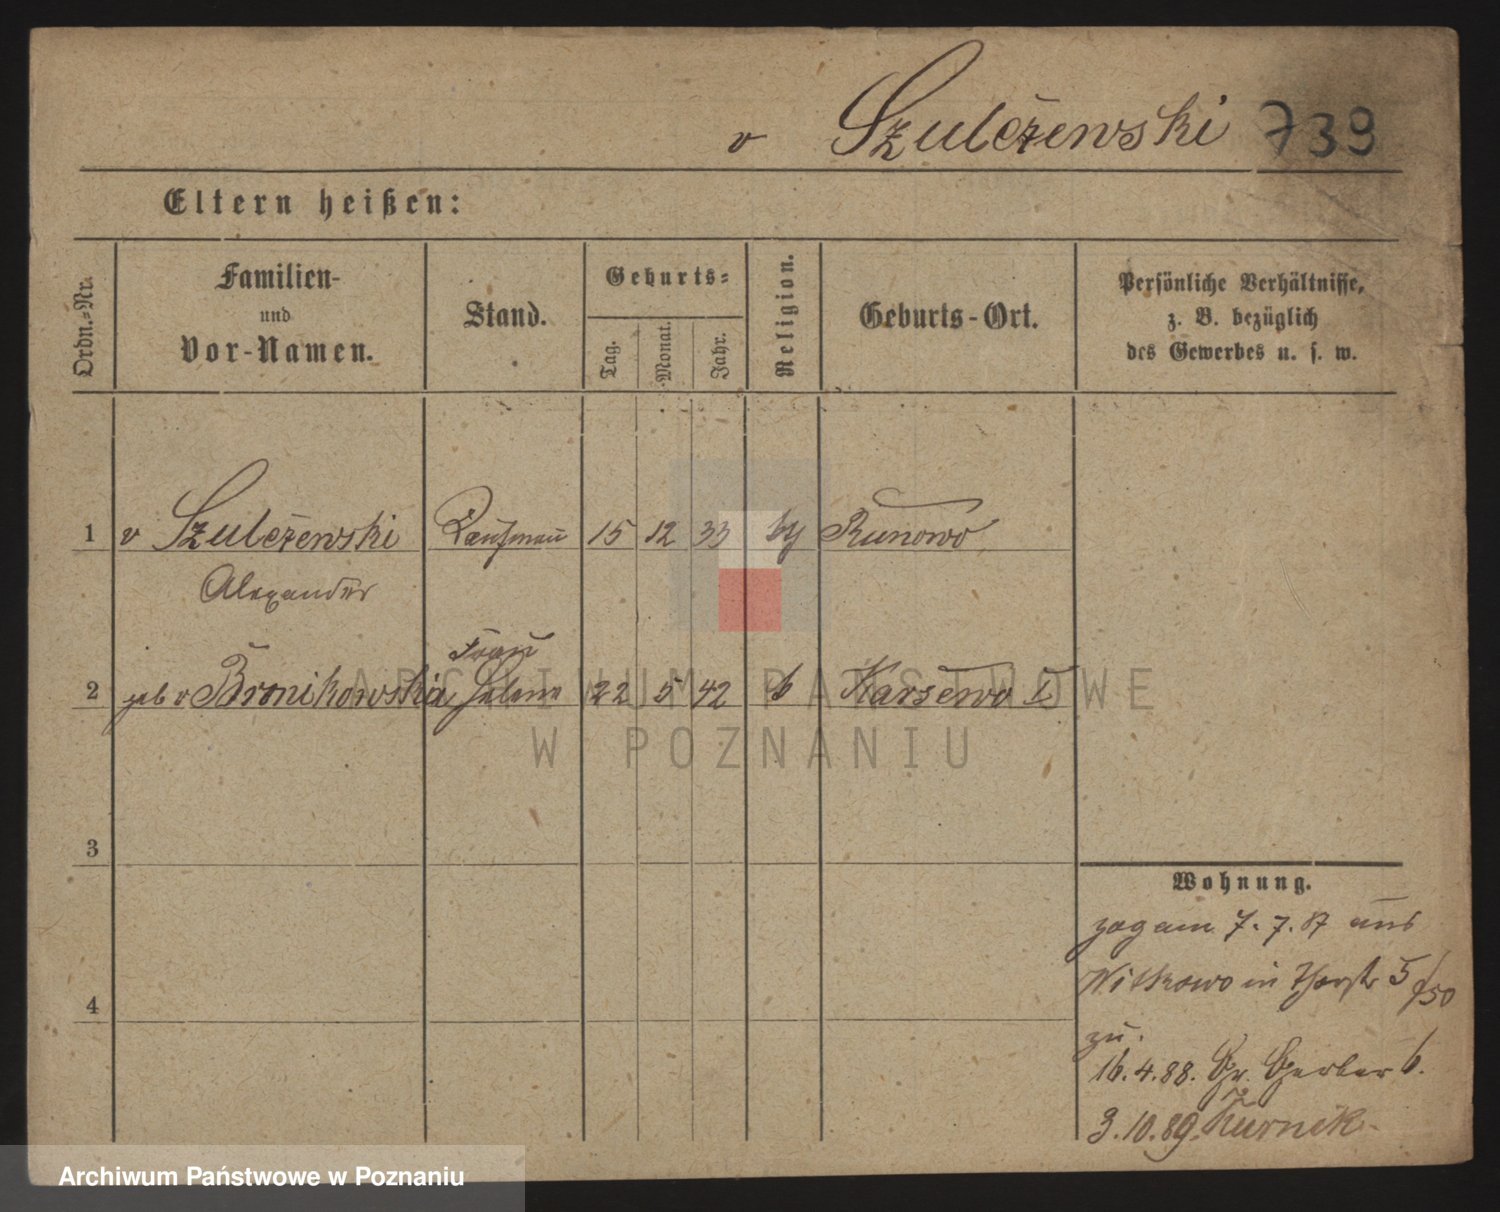 v Szulczewski 739
Eltern heißen:
Ordn.-Nr.
Familien-
und
Vor-Namen.
Stand.
Geburts-
Tag.
Monat.
Jahr.
Religion.
Geburts-Ort.
Persönliche Verhältnisse,
z. B. bezüglich
des Gewerbes u. s. w.
1 v Szulczewski Kaufmann 15 12 33 Runowo
Alexander
Frau
2 geb v Bronikowska Helena 22 5 42 Karsewo I
3
4
Wohnung.
zog am 7.7.87 aus
Witkowo in 5/50
zu.
16.4.88. Gr. Gerber 6.
3.10.89. Kurnik
ARCHIWUM PAŃSTWOWE
W POZNANIU
Archiwum Państwowe w Poznaniu